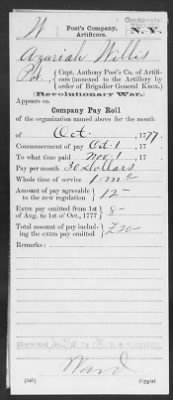 W
Post's Company,
Artificers.
Continental
N.Y.
Azariah Willis
Capt. Anthony Post's Co. of Artificers (annexed to the Artillery by order of Brigadier General Knox.)
(Revolutionary War.)
Appears on
Company Pay Roll
of the organization named above for the month
of Oct. , 1777.
Commencement of pay Oct 1 , 17
To what time paid Nov. 1 , 17
Pay per month 30 Dollars
Whole time of service 1 mo
Amount of pay agreeable
to the new regulation } 12
Extra pay omitted from 1st
of Aug. to 1st of Oct., 1777 } 8
Total amount of pay including
the extra pay omitted } £20
Remarks:
Ward
Copyist.